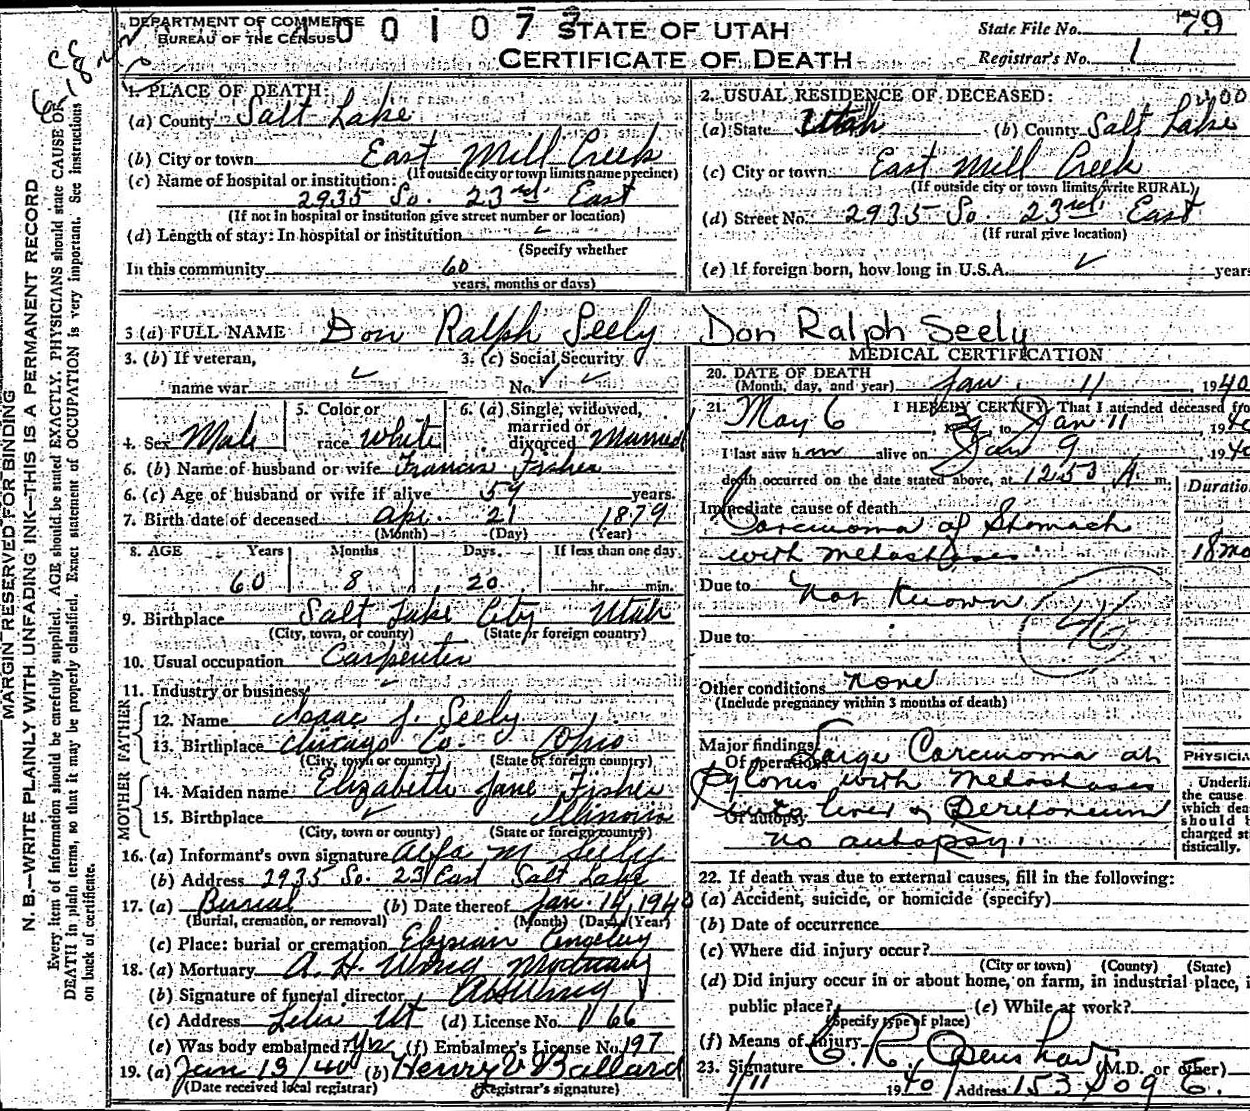 DEPARTMENT OF COMMERCE
BUREAU OF THE CENSUS
0 0 1 0 7 3
STATE OF UTAH
CERTIFICATE OF DEATH
State File No. 79
Registrar's No. 1
MARGIN RESERVED FOR BINDING
N. B.—WRITE PLAINLY WITH UNFADING INK—THIS IS A PERMANENT RECORD
Every item of information should be carefully supplied. AGE should be stated EXACTLY. PHYSICIANS should state CAUSE OF
DEATH in plain terms, so that it may be properly classified. Exact statement of OCCUPATION is very important. See instructions
on back of certificate.
1. PLACE OF DEATH:
(a) County Salt Lake
(b) City or town East Mill Creek
(If outside city or town limits name precinct)
(c) Name of hospital or institution:
2935 So. 23rd East
(If not in hospital or institution give street number or location)
(d) Length of stay: In hospital or institution
(Specify whether
In this community 60
years, months or days)
2. USUAL RESIDENCE OF DECEASED:
(a) State Utah (b) County Salt Lake
(c) City or town East Mill Creek
(If outside city or town limits write RURAL)
(d) Street No. 2935 So. 23rd East
(If rural give location)
(e) If foreign born, how long in U.S.A. ✓ years
3 (a) FULL NAME Don Ralph Seely Don Ralph Seely
3. (b) If veteran,
name war ✓
3. (c) Social Security
No. ✓ ✓
4. Sex Male
5. Color or
race white
6. (a) Single, widowed,
married or
divorced Married
6. (b) Name of husband or wife Francis Fisher
6. (c) Age of husband or wife if alive 59 years.
7. Birth date of deceased Apr. 21 1879
(Month) (Day) (Year)
8. AGE Years Months Days If less than one day
60 8 20 hr. min.
9. Birthplace Salt Lake City Utah
(City, town, or county) (State or foreign country)
10. Usual occupation Carpenter
11. Industry or business
FATHER
12. Name Isaac J. Seely
13. Birthplace Chicago Co. Ohio
(City, town or county) (State or foreign country)
MOTHER
14. Maiden name Elizabeth Jane Fisher
15. Birthplace ✓ Illinois
(City, town or county) (State or foreign country)
16. (a) Informant's own signature Alfa M Seely
(b) Address 2935 So. 23 East Salt Lake
17. (a) Burial (b) Date thereof Jan. 14, 1940
(Burial, cremation, or removal) (Month) (Day) (Year)
(c) Place: burial or cremation Elysian
18. (a) Mortuary A. H. Mortuary
(b) Signature of funeral director
(c) Address Ut (d) License No. 66
(e) Was body embalmed? Yes (f) Embalmer's License No. 197
19. (a) Jan 13/40 (b) Henry Ballard
(Date received local registrar) (Registrar's signature)
MEDICAL CERTIFICATION
20. DATE OF DEATH
(Month, day, and year) Jan. 11, 1940
21. I HEREBY CERTIFY, That I attended deceased from
May 6 39 to Jan 11 1940
I last saw him alive on Jan 9, 1940
death occurred on the date stated above, at 1253 A m.
Duration
Immediate cause of death
Carcinoma of Stomach
with metastases 18 mo
Due to Not Known
46
Due to
Other conditions none
(Include pregnancy within 3 months of death)
Major findings:
Of operations Large Carcinoma at
Pylorus with Metastases
into liver & Peritoneum
Of autopsy
no autopsy.
PHYSICIAN
Underline
the cause
which dea
should b
charged st
tistically.
22. If death was due to external causes, fill in the following:
(a) Accident, suicide, or homicide (specify)
(b) Date of occurrence
(c) Where did injury occur?
(City or town) (County) (State)
(d) Did injury occur in or about home, on farm, in industrial place, i
public place? (e) While at work?
(Specify type of place)
(f) Means of Injury
23. Signature C R Openshaw (M.D. or other)
1/11 1940 Address 153 So 9 E.